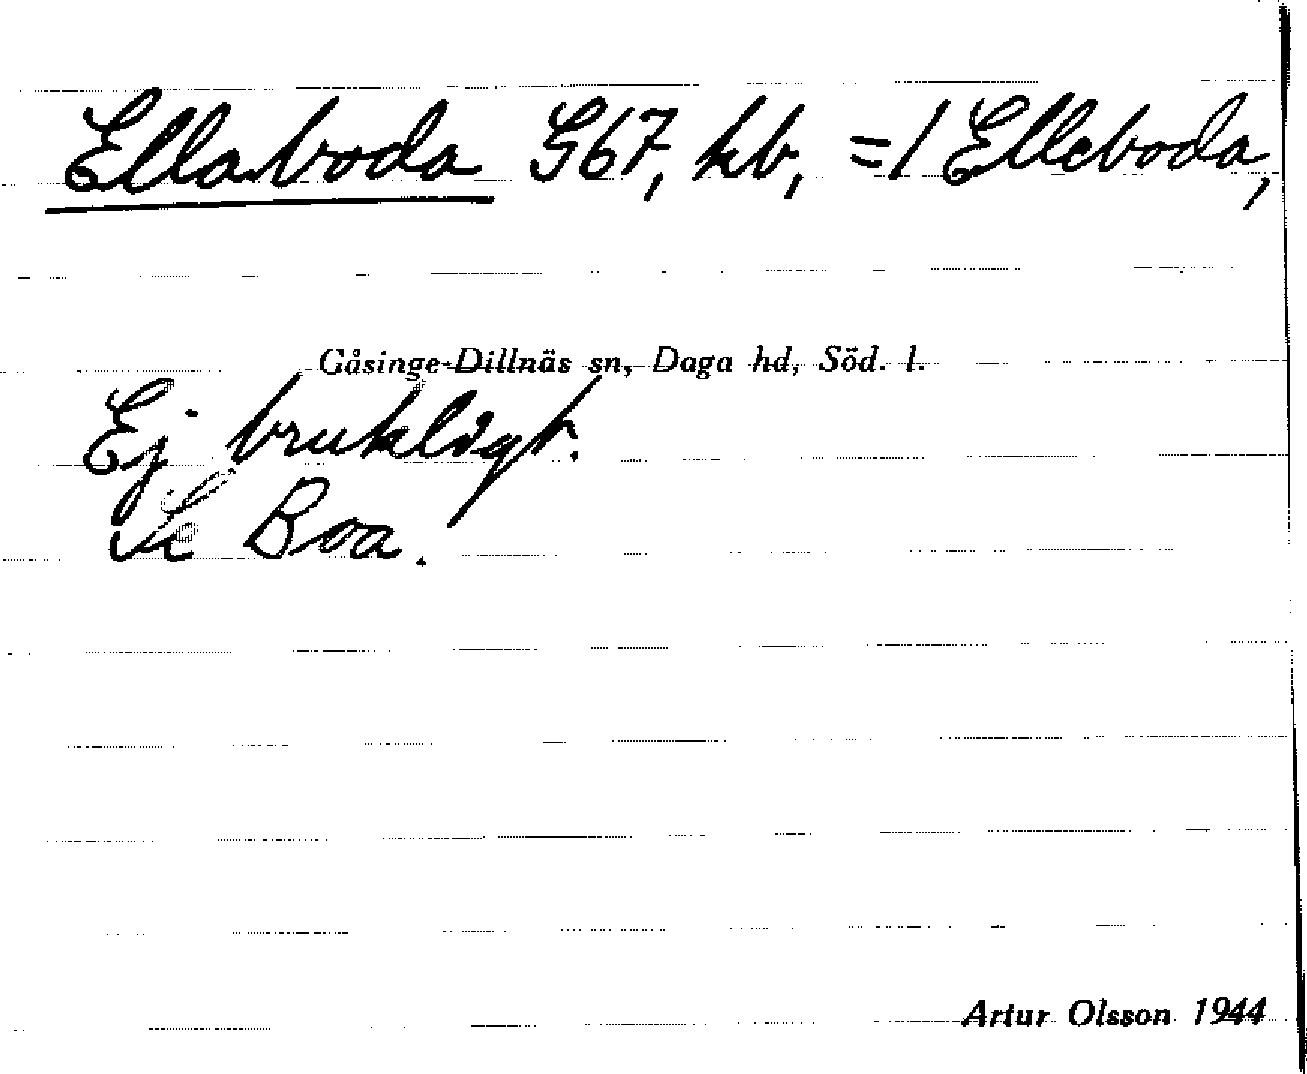 Ellaboda G67, kb, =/ Elleboda,
Gåsinge-Dillnäs sn, Daga hd, Söd. l.
Ej brukligt.
Se Boa.
Artur Olsson 1944